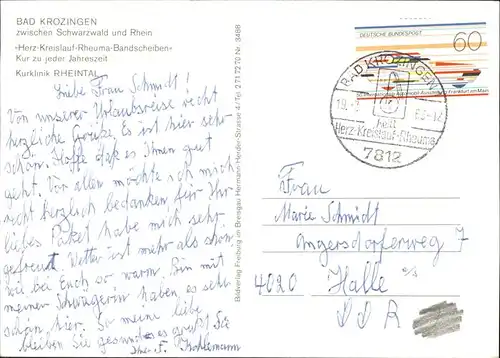 BAD KROZINGEN
zwischen Schwarzwald und Rhein
»Herz-Kreislauf-Rheuma-Bandscheiben«
Kur zu jeder Jahreszeit
Kurklinik RHEINTAL
Liebe Frau Schmidt!
Von unserer Urlaubsreise recht
herzliche Grüße. Es ist hier sehr
schön. Hoffe daß es Ihnen gut
geht. Vor allem möchte ich mich
recht herzlich bedanken für Ihr
liebes Paket habe mich sehr
gefreut. Wetter ist mehr als schön
wie bei Euch so warm. Bin mit
meiner Schwägerin haben es sehr
schön hier. So meine liebe
bleiben Sie gesund es grüßt Sie
Ihre F.
Bildverlag Freiburg im Breisgau Hermann-Herder-Straße 4 / Tel. 2 71 72 70 Nr. 8486
DEUTSCHE BUNDESPOST
60
Frankfurt am Main
BAD KROZINGEN
19.
heilt
Herz-Kreislauf-Rheuma
7812
Frau
Marie Schmidt
Angersdorferweg 7
4020 Halle a/s
DDR